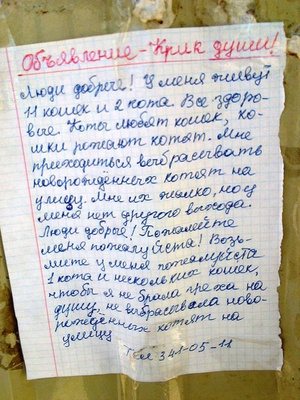 Объявление - Крик души!
Люди добрые! У меня живут
11 кошек и 2 кота. Все здоро-
вые. Коты любят кошек, ко-
шки рожают котят. Мне
приходиться выбрасывать
новорождённых котят на
улицу. Мне их жалко, но у
меня нет другого выхода.
Люди добрые! Пожалейте
меня пожалуйста! Возь-
мите у меня пожалуйста
1 кота и нескольких кошек,
чтобы я не брала греха на
душу, не выбрасывала ново-
рождённых котят на
улицу
Тел 341-05-11